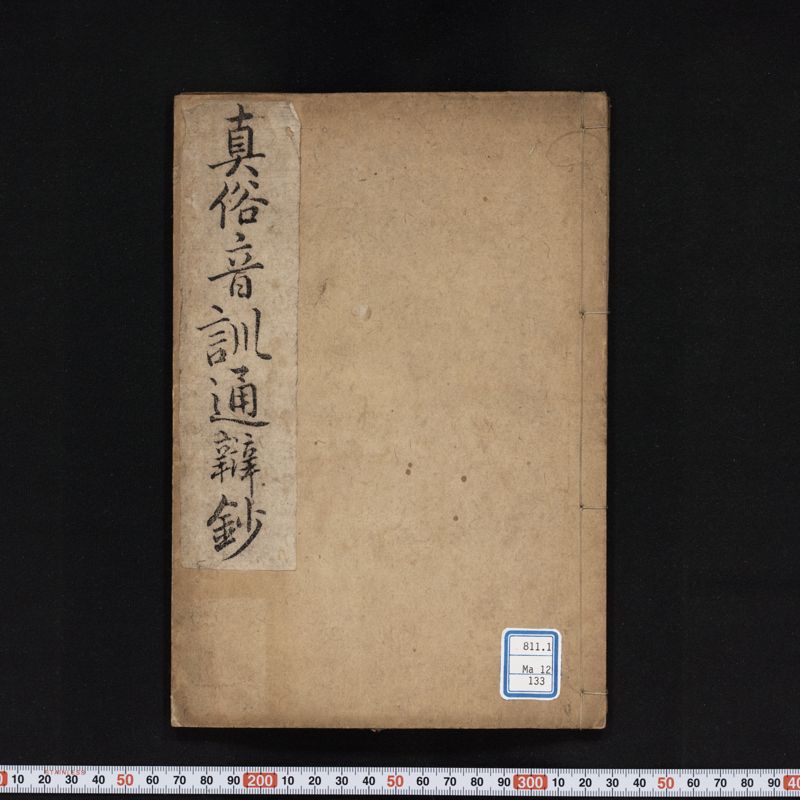 真俗音訓通辯鈔
811.1
Ma 12
133
10 20 30 40 50 60 70 80 90 200 10 20 30 40 50 60 70 80 90 300 10 20 30 40 50 60 70 80 90